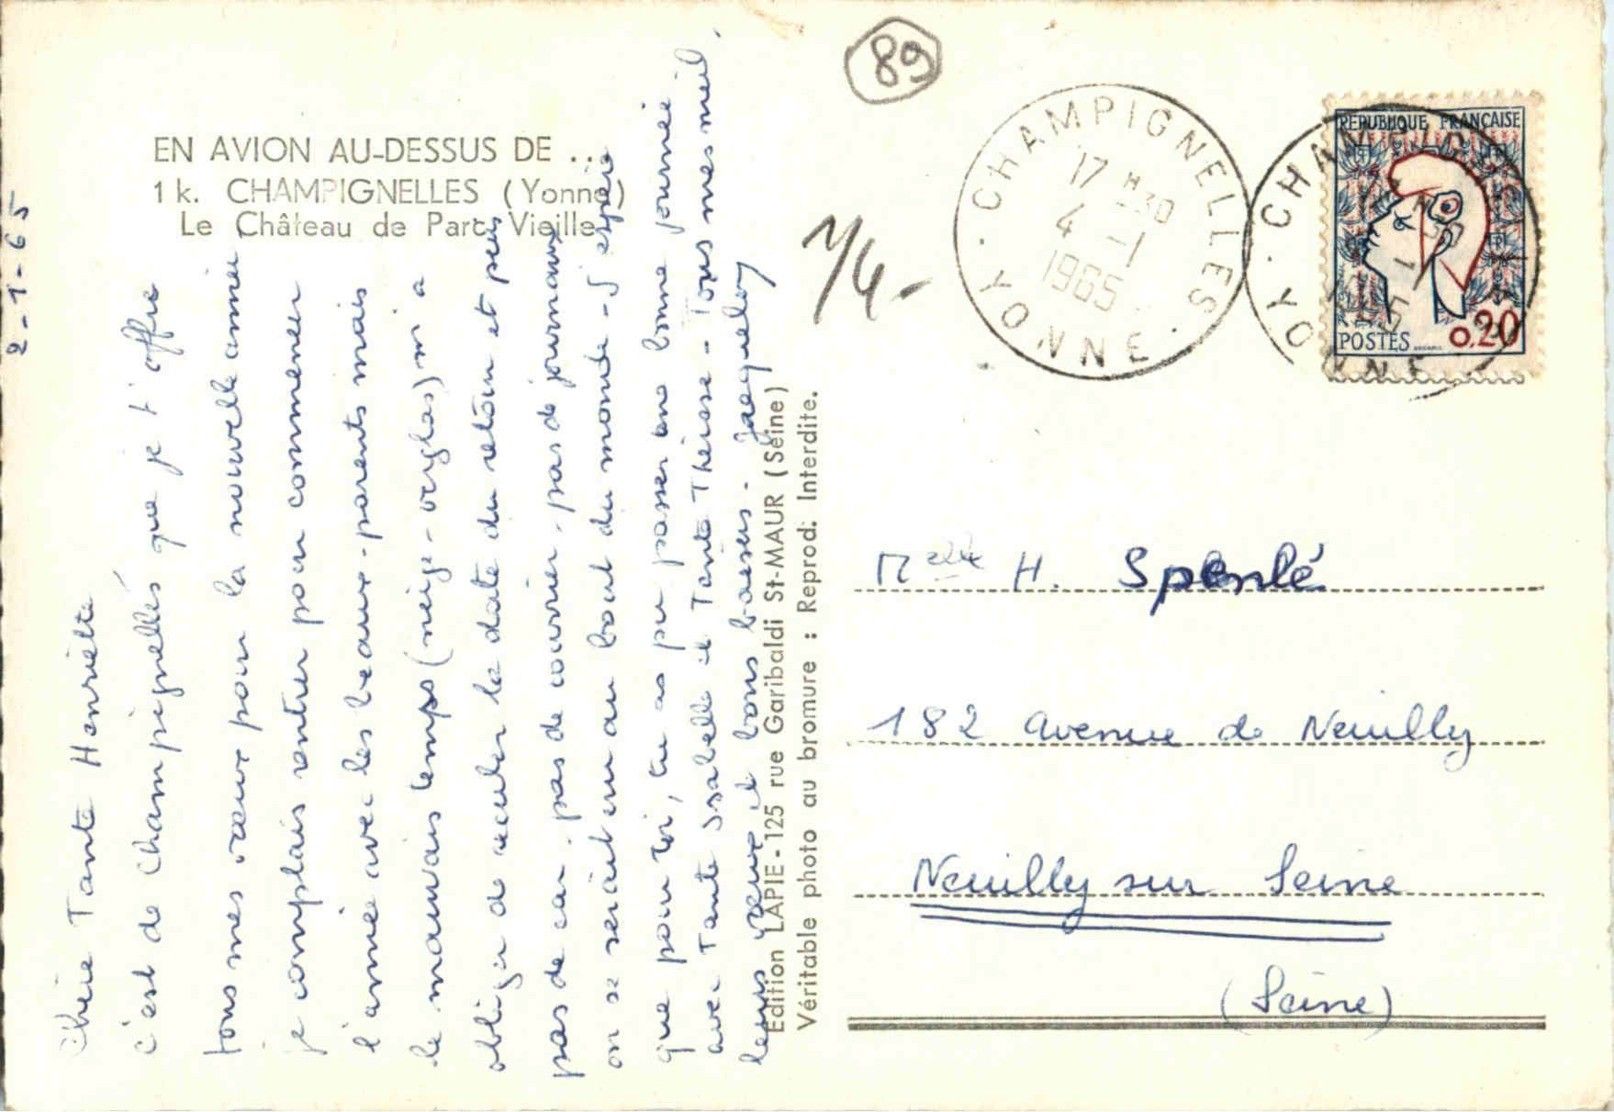 EN AVION AU-DESSUS DE ...
1 k. CHAMPIGNELLES (Yonne)
Le Château de Parc Vieille
2-1-65
Chère Tante Henriette
c'est de Champignelles que je t'offre
tous mes vœux pour la nouvelle année
je comptais rentrer pour commencer
l'année avec les beaux-parents mais
le mauvais temps (neige-verglas) m'a
obligée de reculer la date du retour et puis
pas de car, pas de courrier, pas de journaux
on se serait cru au bout du monde - J'espère
que pour toi, tu as pu passer une bonne journée
avec Tante Isabelle et Tante Thérèse - Tous mes meil
leurs vœux et bons baisers - Jacqueline
Edition LAPIE-125 rue Garibaldi St-MAUR (Seine)
Véritable photo au bromure : Reprod. Interdite.
89
1/4-
CHAMPIGNELLES
17 H30
4 -1
1965
YONNE
REPUBLIQUE FRANÇAISE
POSTES 0,20
CHAMPIGNELLES
YONNE
Melle H. Spenlé
182 avenue de Neuilly
Neuilly sur Seine
(Seine)